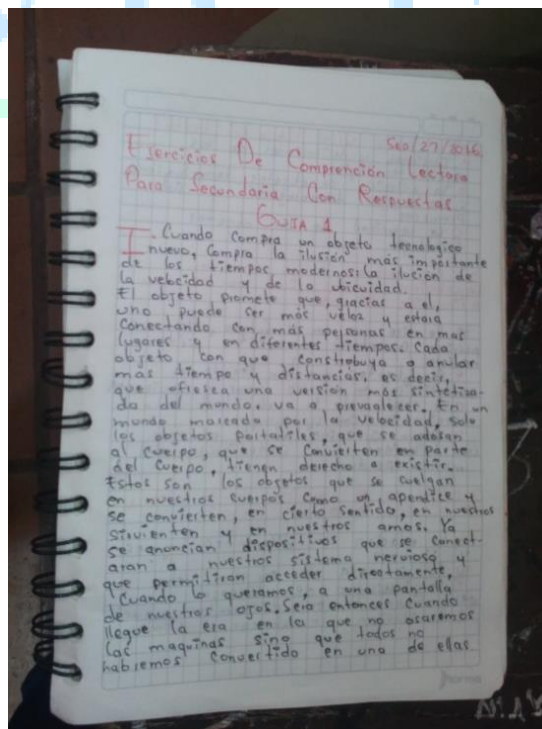 Sep/27/2016.
Ejercicios De Comprención Lectora
Para Secundaria Con Respuestas
GUIA 1
I-Cuando Compra un objeto tecnologico
nuevo, Compra la ilusión más importante
de los tiempos modernos: la ilución de
la velocidad y de la ubicuidad.
El objeto promete que, gracias a el,
uno puede ser más veloz y estara
Conectando con más personas en mas
lugares y en diferentes tiempos. Cada
objeto con que constribuya a anular
más tiempo y distancias, es decir,
que ofresca una versión más sintetiza-
da del mundo, va a prevalecer. En un
mundo marcado por la velocidad, solo
los objetos portatiles, que se adosan
al cuerpo, que se convierten en parte
del cuerpo, tienen derecho a existir.
Estos son los objetos que se cuelgan
en nuestros cuerpos como un apendice y
se convierten, en cierto sentido, en nuestros
sirvienten y en nuestros amos. Ya
se anuncian dispositivos que se conect-
aran a nuestros sistema nervioso y
que permitiran acceder directamente,
Cuando lo queramos, a una pantalla
de nuestros ojos. Sera entonces cuando
llegue la era en la que no osaremos
las maquinas sino que todos no
habremos convertido en una de ellas.
norma